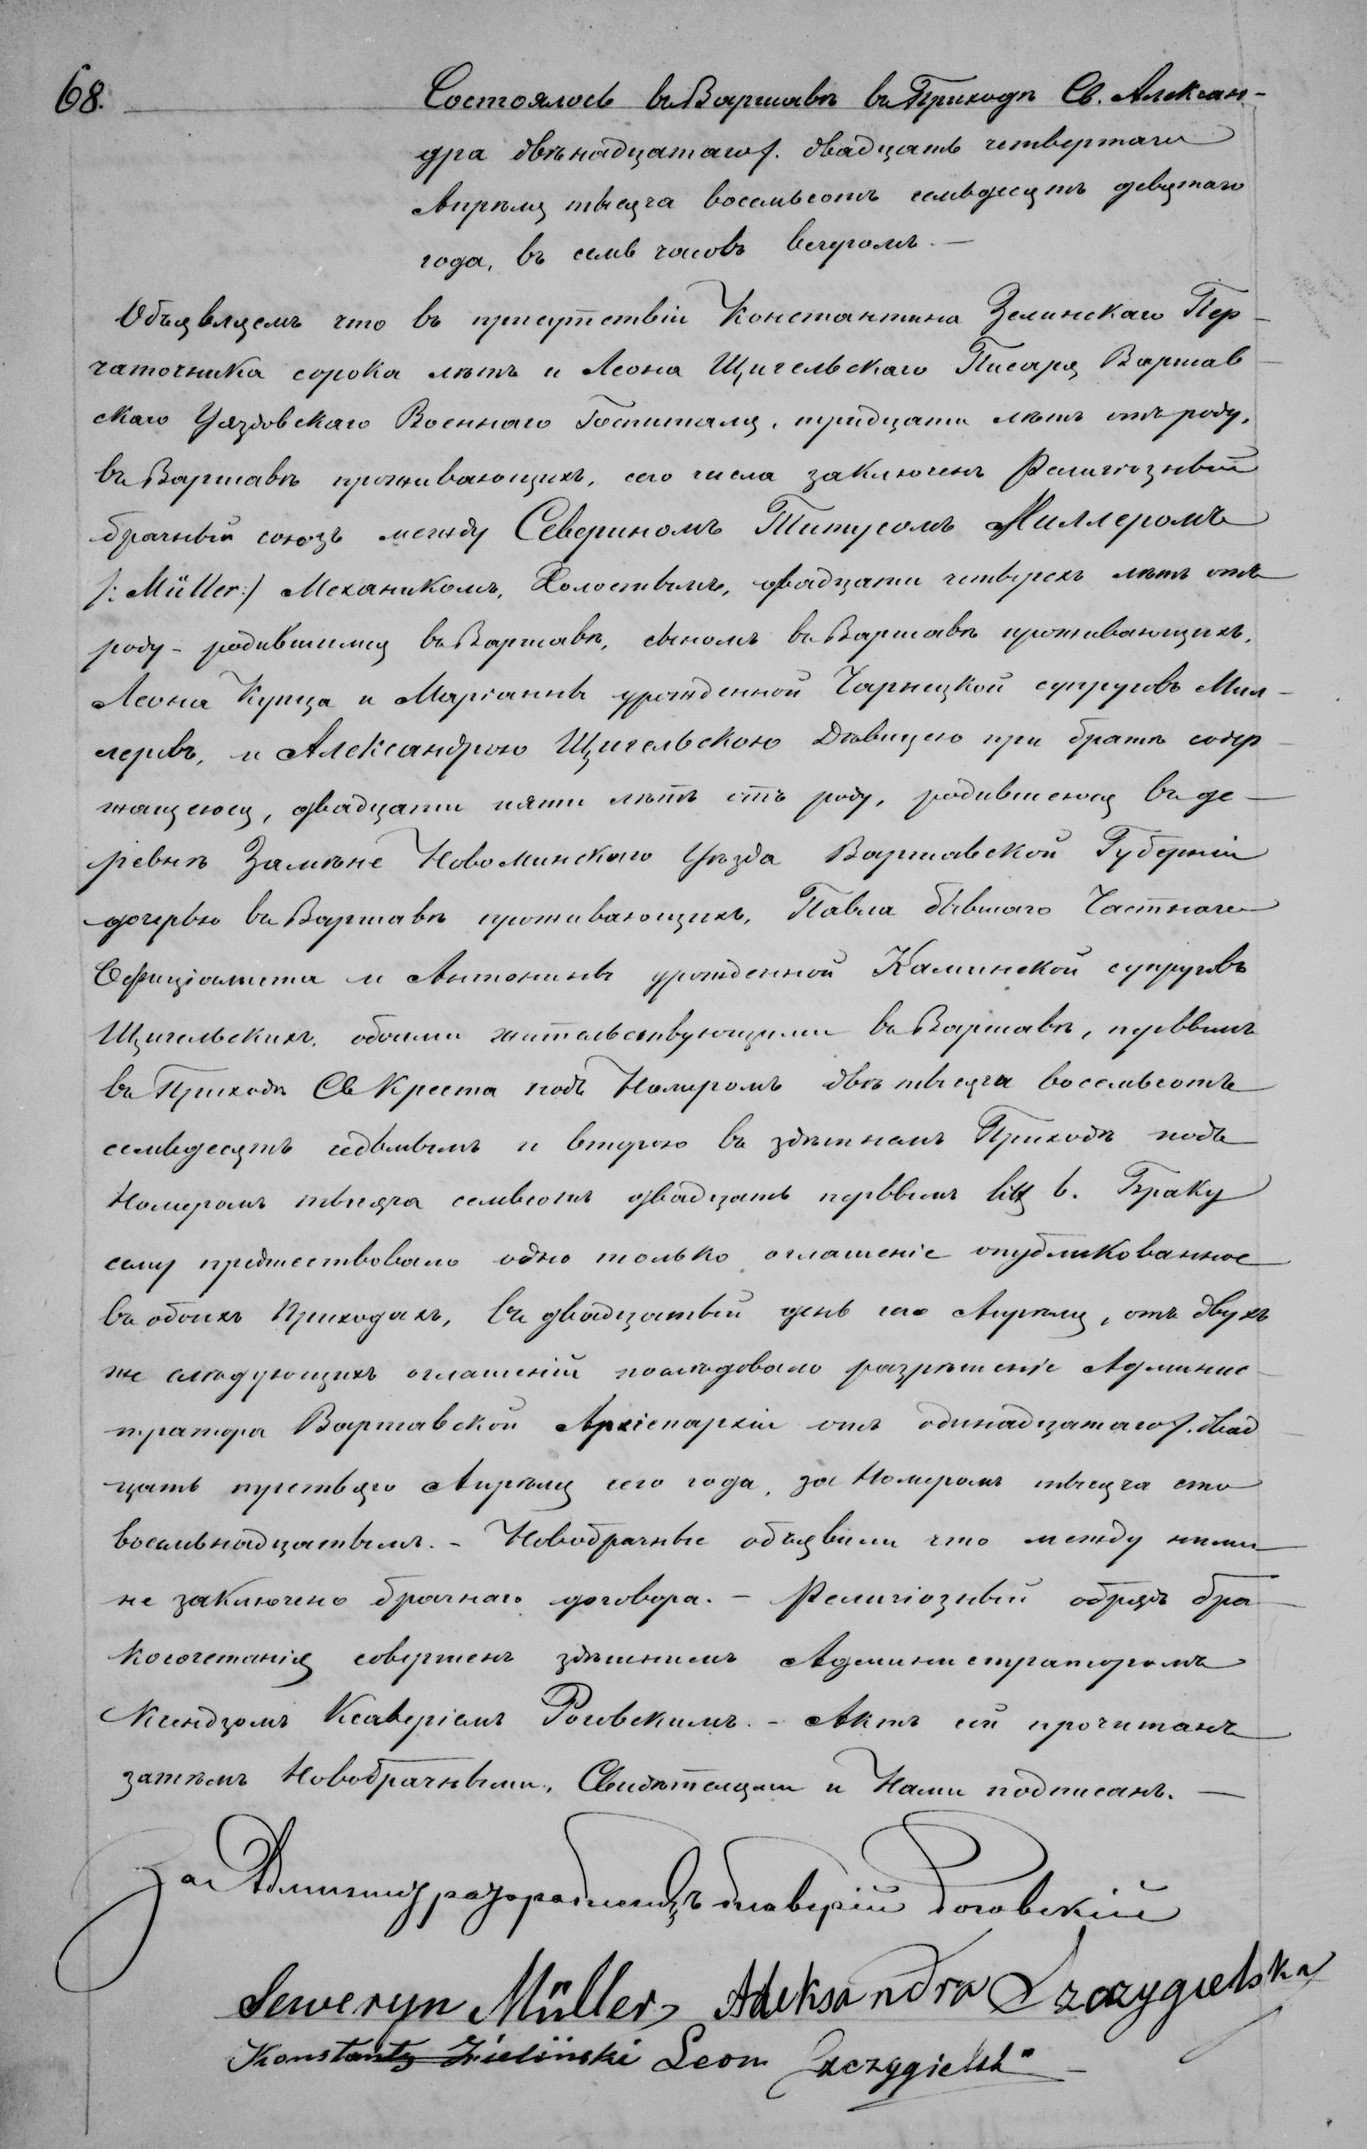 68. Состоялось въ Варшавѣ въ Приходѣ Св. Алексан-
дра двѣнадцатаго /. двадцать четвертаго
Апрѣля тысяча восемьсотъ семьдесятъ девятаго
года, въ семь часовъ вечеромъ. —
Объявляемъ что въ присутствіи Константина Зелинскаго Пер-
чаточника сорока лѣтъ и Леона Щигельскаго Писаря Варшав-
скаго Уяздовскаго Военнаго Госпиталя, тридцати лѣтъ отъ роду,
въ Варшавѣ проживающихъ, сего числа заключенъ Религіозный
брачный союзъ между Севериномъ Титусомъ Миллеромъ
/: Müller :/ Механикомъ, Холостымъ, двадцати четырехъ лѣтъ отъ
роду - родившимся въ Варшавѣ, сыномъ въ Варшавѣ проживающихъ,
Леона Купца и Маріанны урожденной Чарнецкой супруговъ Мил-
леровъ, и Александрою Щигельскою Дѣвицею при братѣ содер-
жащеюся, двадцати пяти лѣтъ отъ роду, родившеюся въ де-
ревнѣ Замѣне Новоминскаго Уѣзда Варшавской Губерніи
дочерью въ Варшавѣ проживающихъ, Павла бывшаго Частнаго
Оффиціалиста и Антонины урожденной Каминской супруговъ
Щигельскихъ, обоими жительствующими въ Варшавѣ, первымъ
въ Приходѣ Св Креста подъ Номеромъ двѣ тысяча восемьсотъ
семьдесятъ седьмымъ и второю въ здѣшнемъ Приходѣ подъ
Номеромъ тысяча семьсотъ двадцать первымъ litt b. Браку
сему предшествовало одно только оглашеніе опубликованное
въ обоихъ Приходахъ, въ двадцатый день сего Апрѣля, отъ двухъ
же слѣдующихъ оглашеній послѣдовало разрѣшеніе Админис-
тратора Варшавской Архіепархіи отъ одинадцатаго /. двад
цать третьяго Апрѣля сего года, за Номеромъ тысяча сто
восемьнадцатымъ. - Новобрачные объявили что между ними
не заключено брачнаго договора. - Религіозный обрядъ бра-
косочетанія совершенъ здѣшнимъ Администраторомъ
Ксендзомъ Ксаверіемъ Роговскимъ. - Актъ сей прочитанъ
затѣмъ Новобрачными, Свидѣтелями и Нами подписанъ. —
За Администратора Ксаверій Роговскій
Seweryn Müller, Aleksandra Szczygielska
Konstanty Zieliński Leon Szczygielski